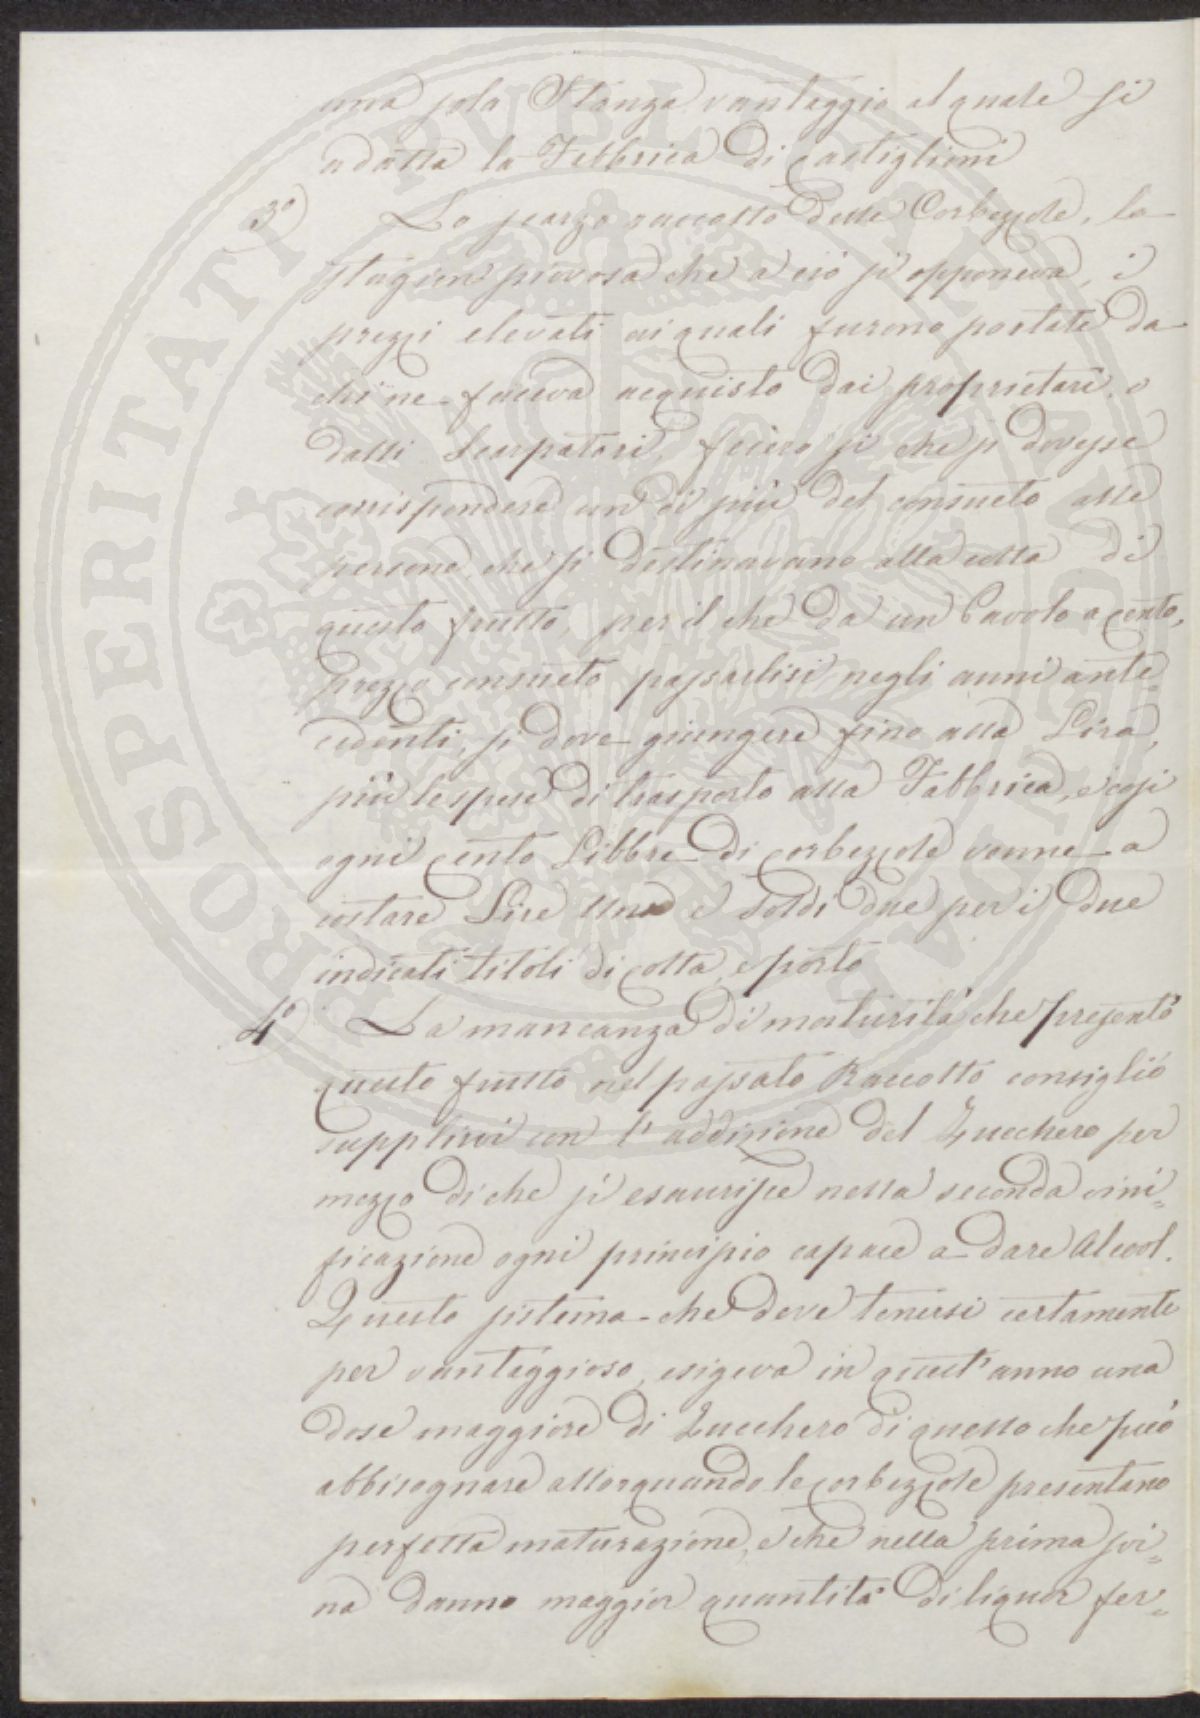 una sola Stanza vantaggio al quale si
adatta la Fabbrica di Castiglioni
3º Lo scarzo raccolto delle Corbezzole, la
stagion piovosa che a ciò si opponeva, i
prezzi elevati ai quali furono portate da
chi ne faceva acquisto dai proprietari, o
dalli Scarpatori, fecero si che si dovesse
corrispondere un di più del consueto alle
persone che si destinavano alla colta di
questo frutto, per il che da un Pavolo a cento,
prezzo consueto passarlisi negli anni ante
cedenti, si dove giungere fino alla Lira,
più le spese di trasporto alla Fabbrica, e cosi
ogni cento Libbre di corbezzole venne a
costare Lire Una e Soldi due per i due
indicati titoli di colta, e porto
4º La mancanza di maturità che presentò
questo frutto nel passato Raccolto consigliò
supplirvi con l'addizione del Zucchero per
mezzo di che si esaurisce nella seconda vini=
ficazione ogni principio capace a dare Alcool.
Questo sistema che deve tenersi certamente
per vantaggioso, esigeva in quest'anno una
dose maggiore di Zucchero di quello che può
abbisognare allorquando le corbezzole presentano
perfetta maturazione, e che nella prima svi=
na danno maggior quantità di liquor fer=
PROSPERITATI PUBLICAE AUGENDAE